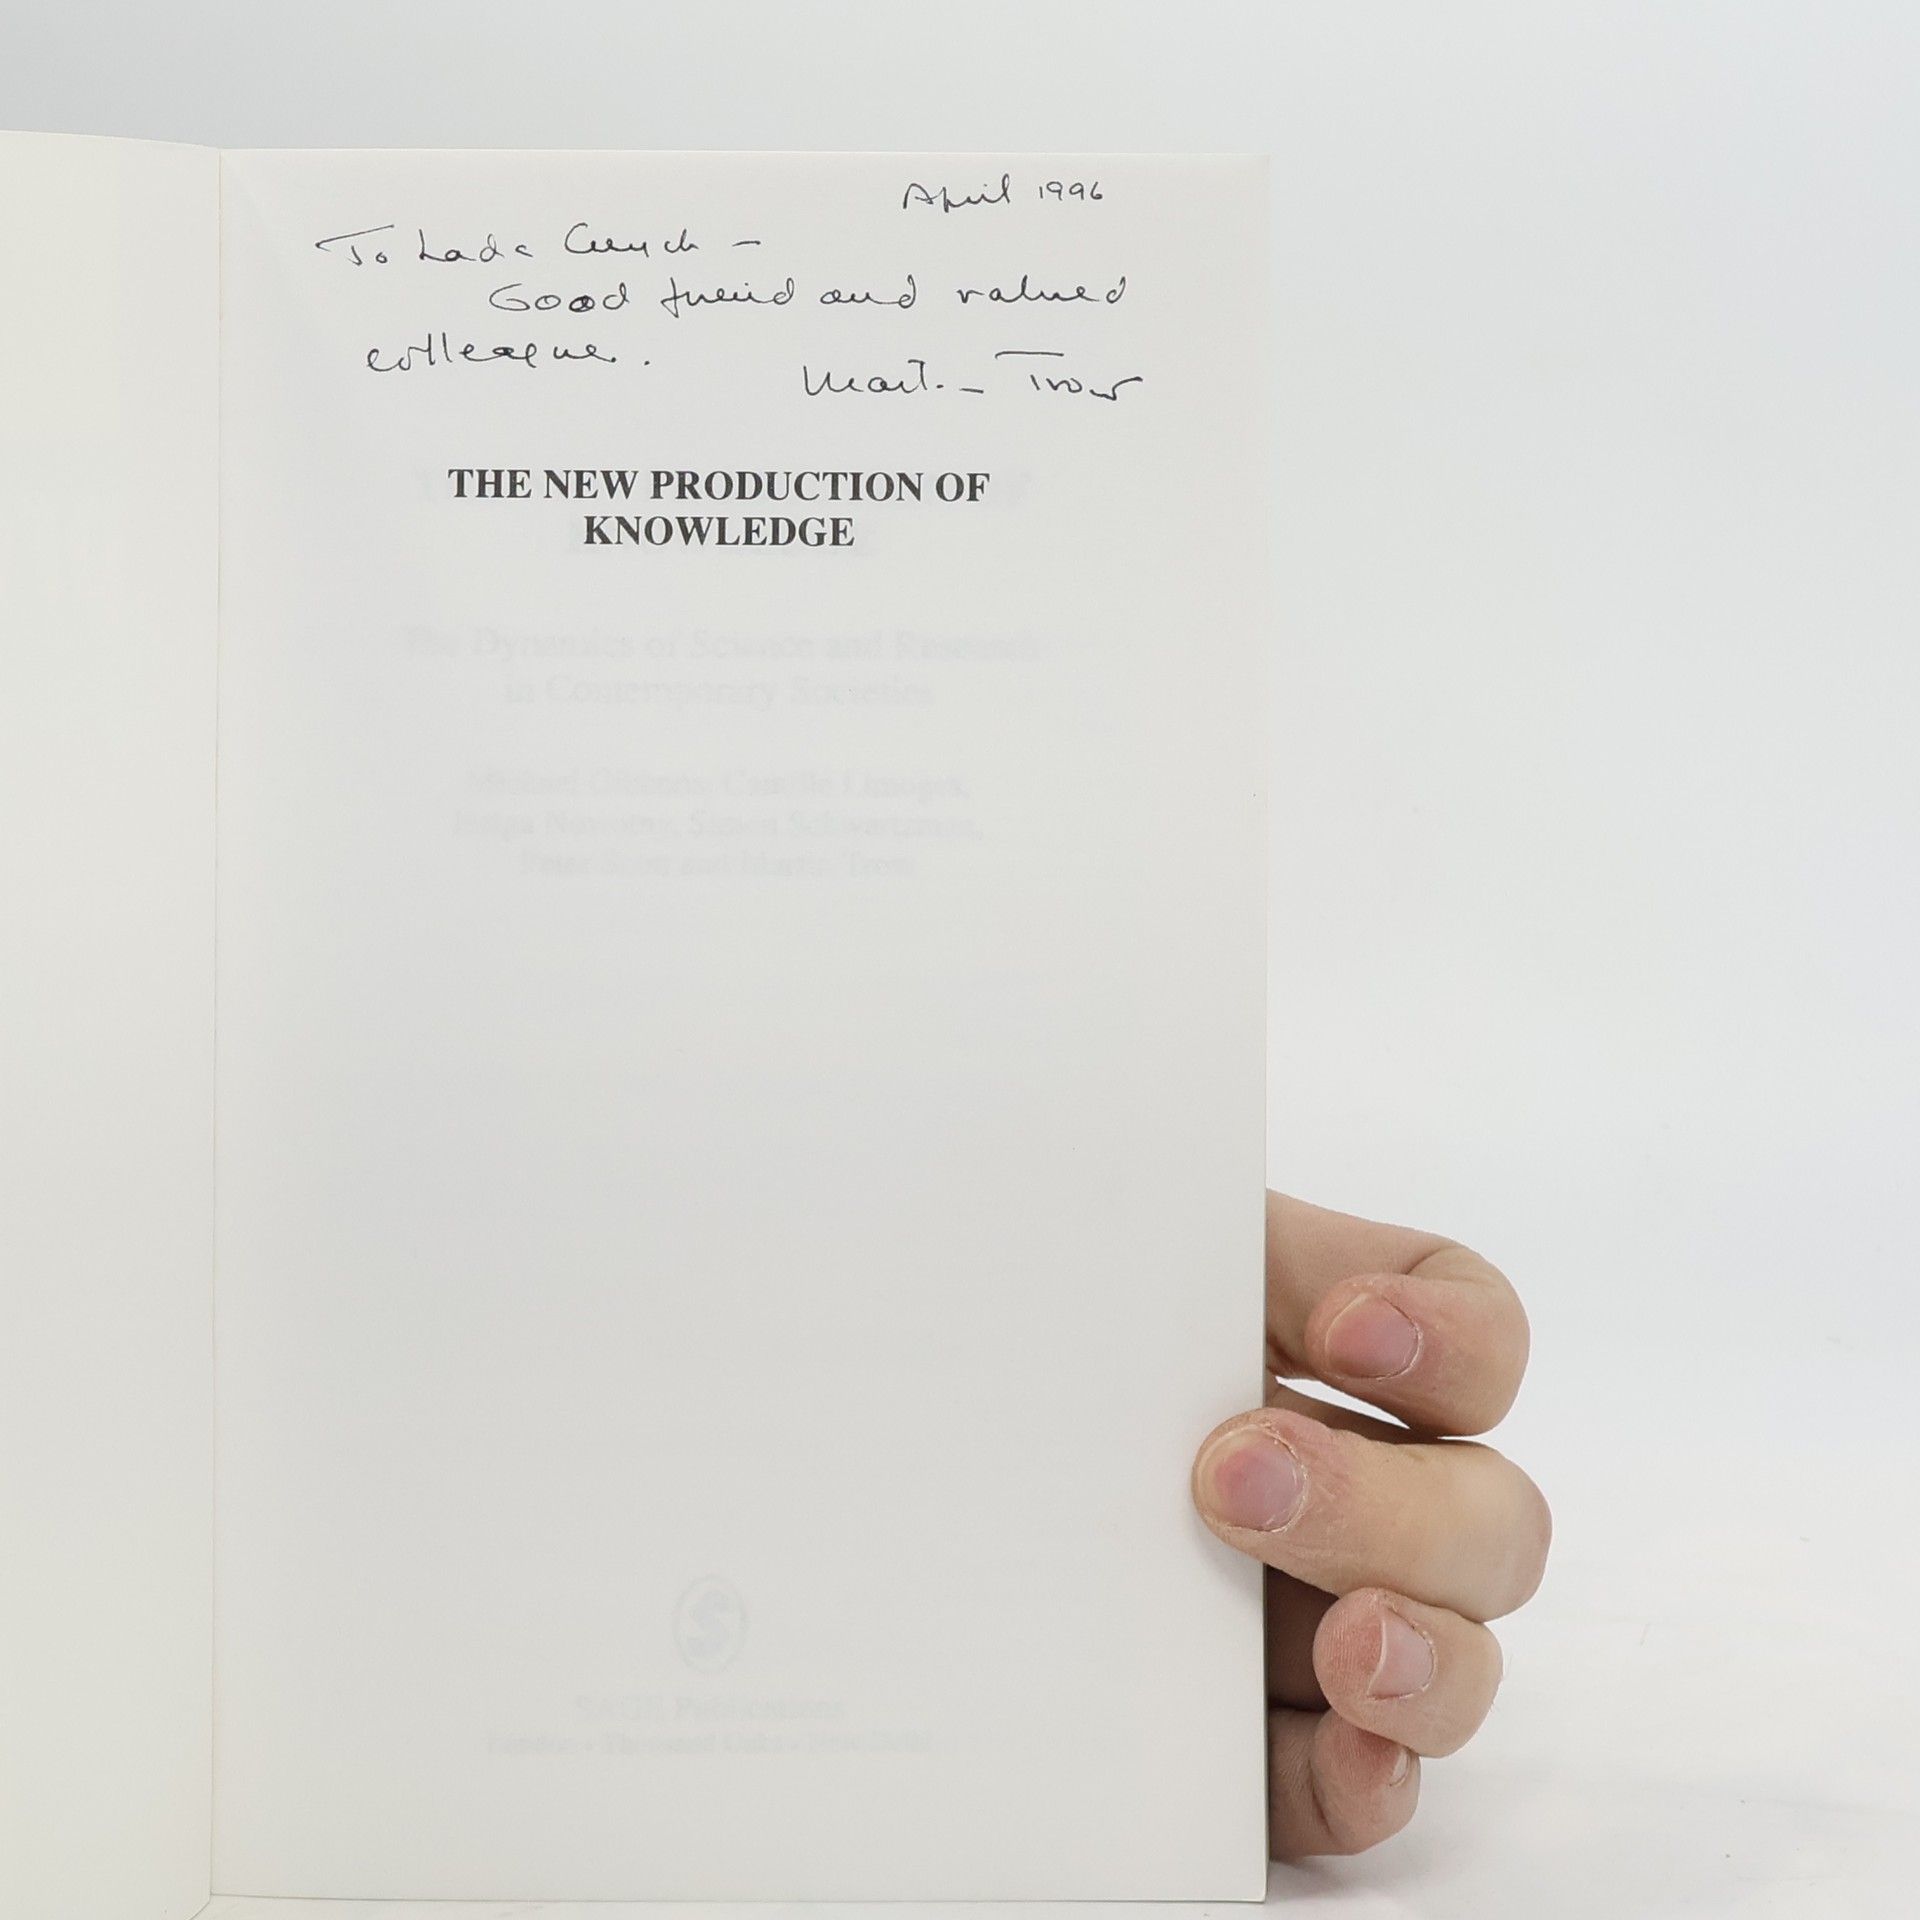 April 1996
To Lada Cerych –
Good friend and valued
colleague.
Martin Trow
THE NEW PRODUCTION OF
KNOWLEDGE
The Dynamics of Science and Research
in Contemporary Societies
Michael Gibbons, Camille Limoges,
Helga Nowotny, Simon Schwartzman,
Peter Scott and Martin Trow
S
SAGE Publications
London • Thousand Oaks • New Delhi